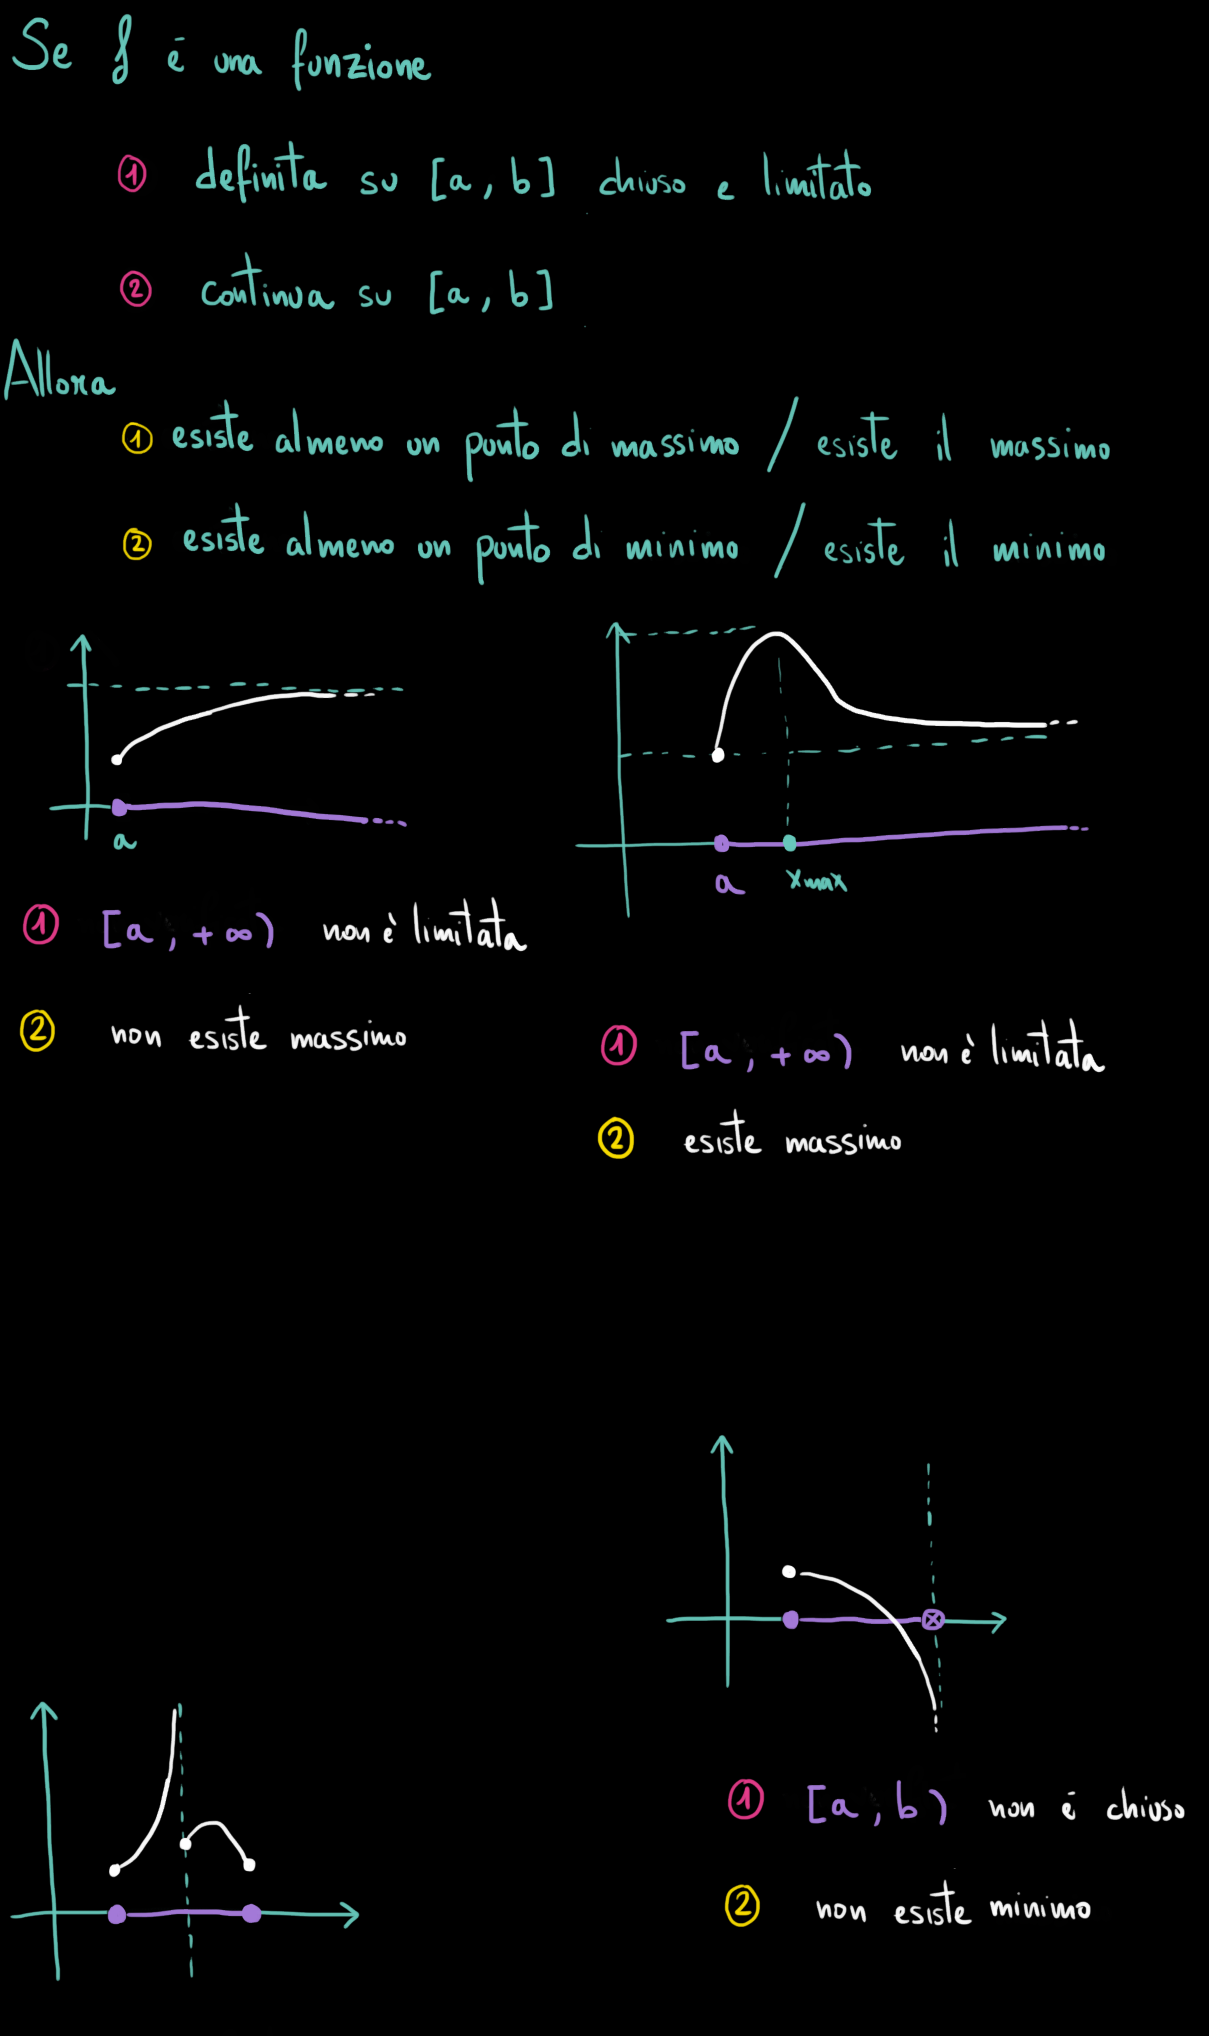 Se f é una funzione
① definita su [a, b] chiuso e limitato
② continua su [a, b]
Allora
① esiste almeno un punto di massimo / esiste il massimo
② esiste almeno un punto di minimo / esiste il minimo
a
① [a, +∞) non è limitata
② non esiste massimo
a xmax
① [a, +∞) non è limitata
② esiste massimo
① [a, b) non é chiuso
② non esiste minimo